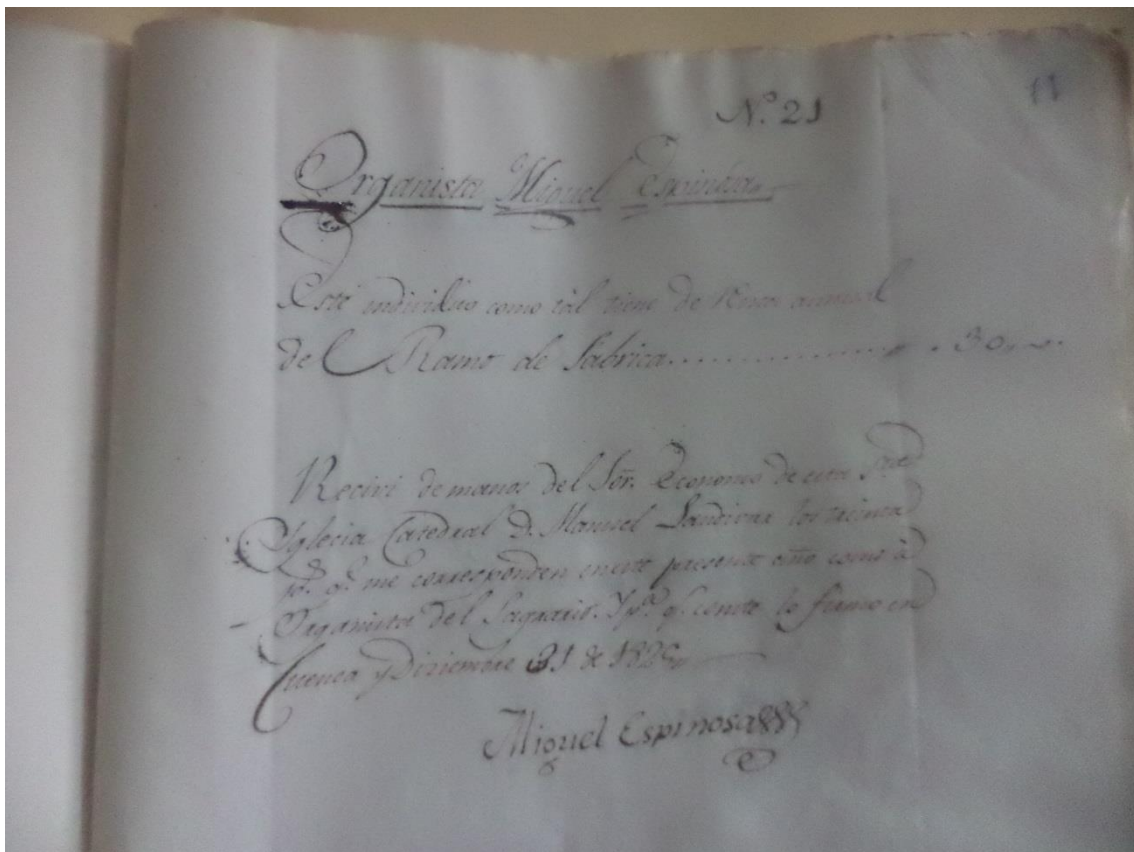 11
N.º 21
Organista Miguel Espinosa
Este individuo como tál tiene de Renta annual
de el Ramo de fabrica ............... 30
Reciví de manos del Sõr. Economo de esta Sta
Yglecia Catedral D. Manuel Landivar los treinta
ps. q.e me corresponden en este presente año como à
Organista del Sagrario. Y pª. q.e conste lo firmo en
Cuenca y Diziembre 31 de
Miguel Espinosa